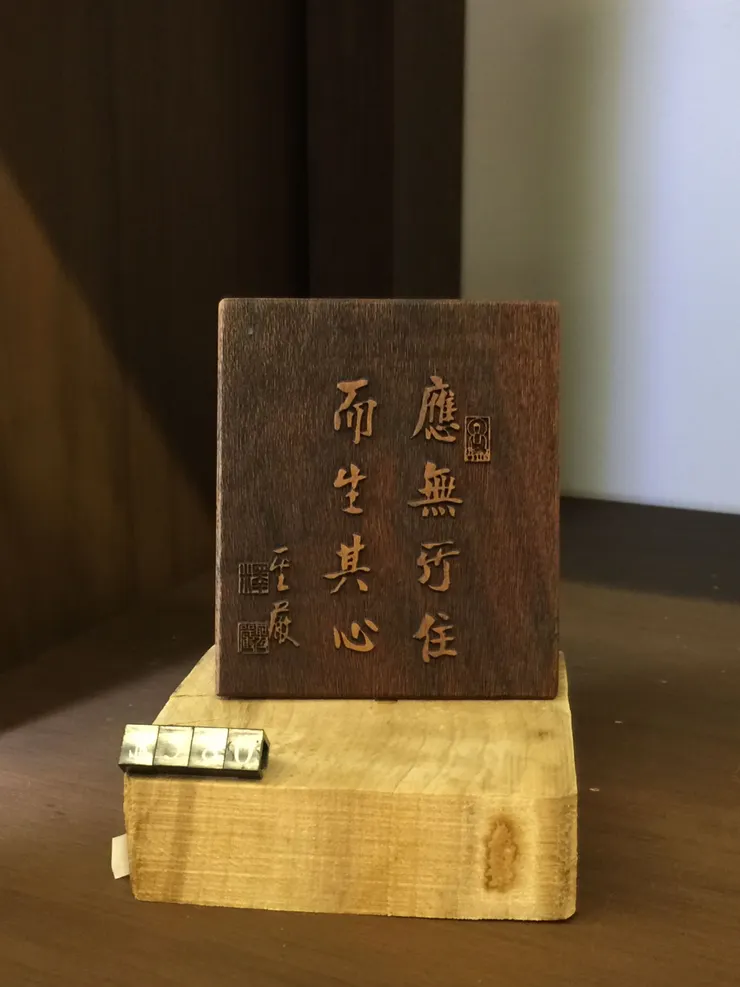 應無所住
而生其心
聖嚴